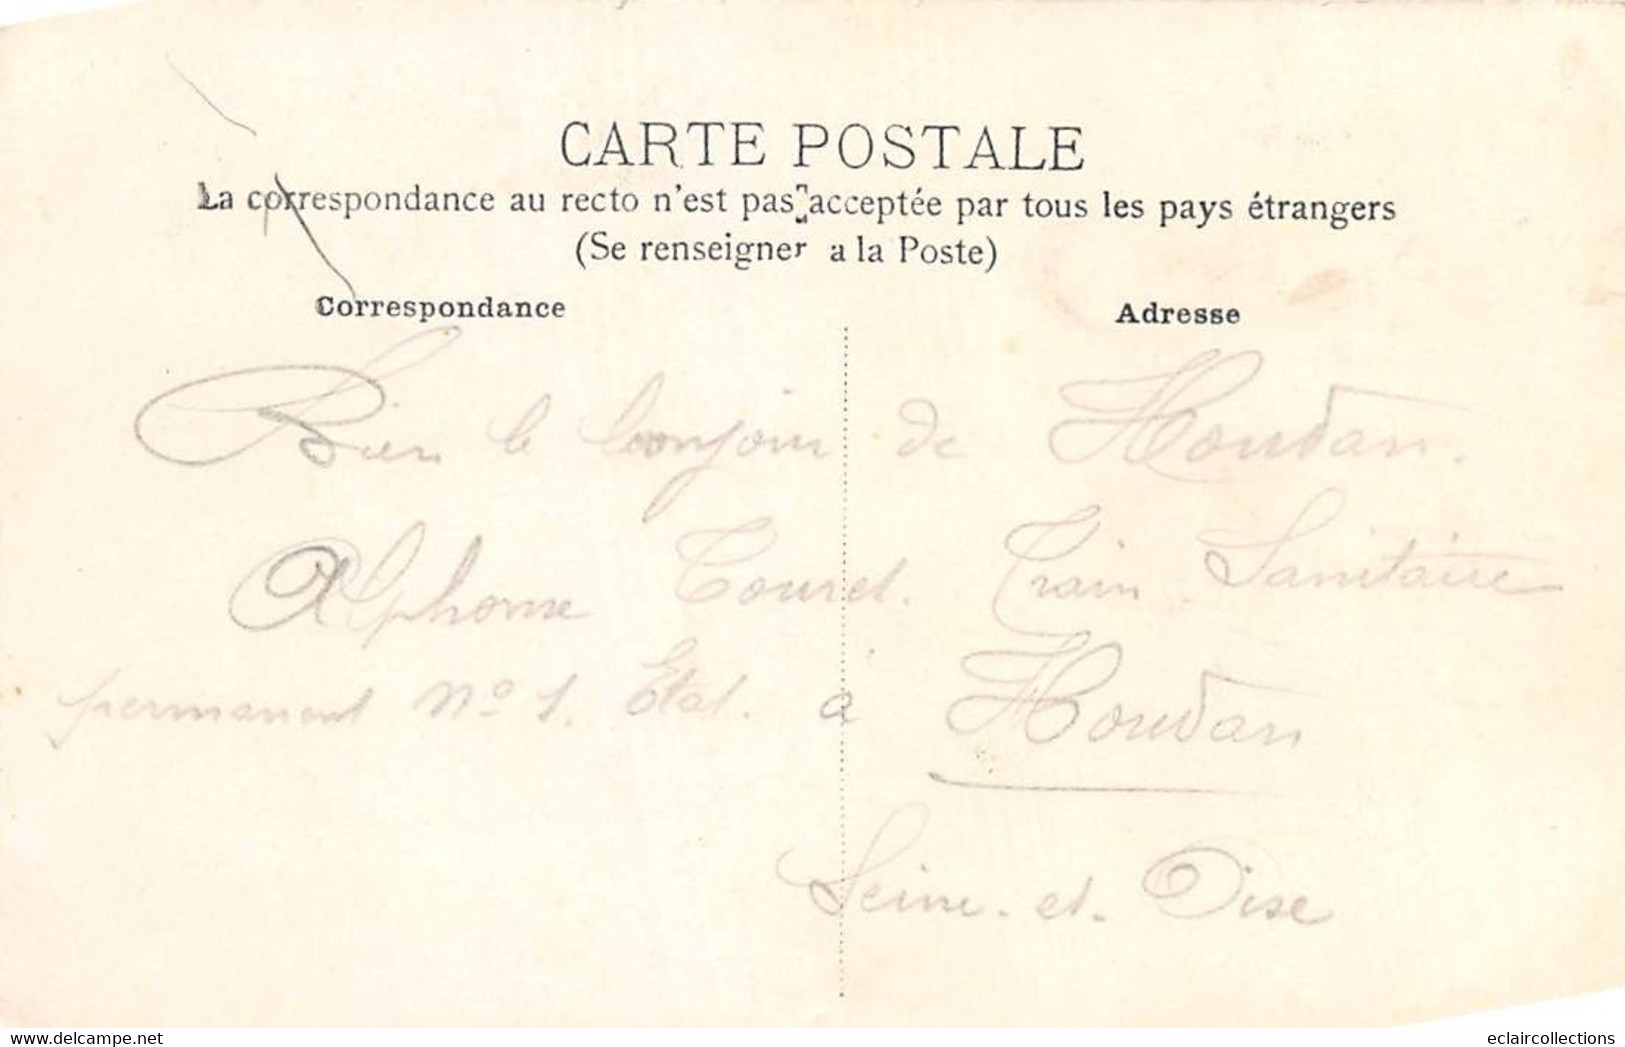 CARTE POSTALE
La correspondance au recto n'est pas acceptée par tous les pays étrangers
(Se renseigner a la Poste)
Correspondance Adresse
Bien le bonjour de Houdan.
Alphonse Touret. Train Sanitaire
permanent No 1. Etat. à Houdan
Seine-et-Oise
eclaircollections